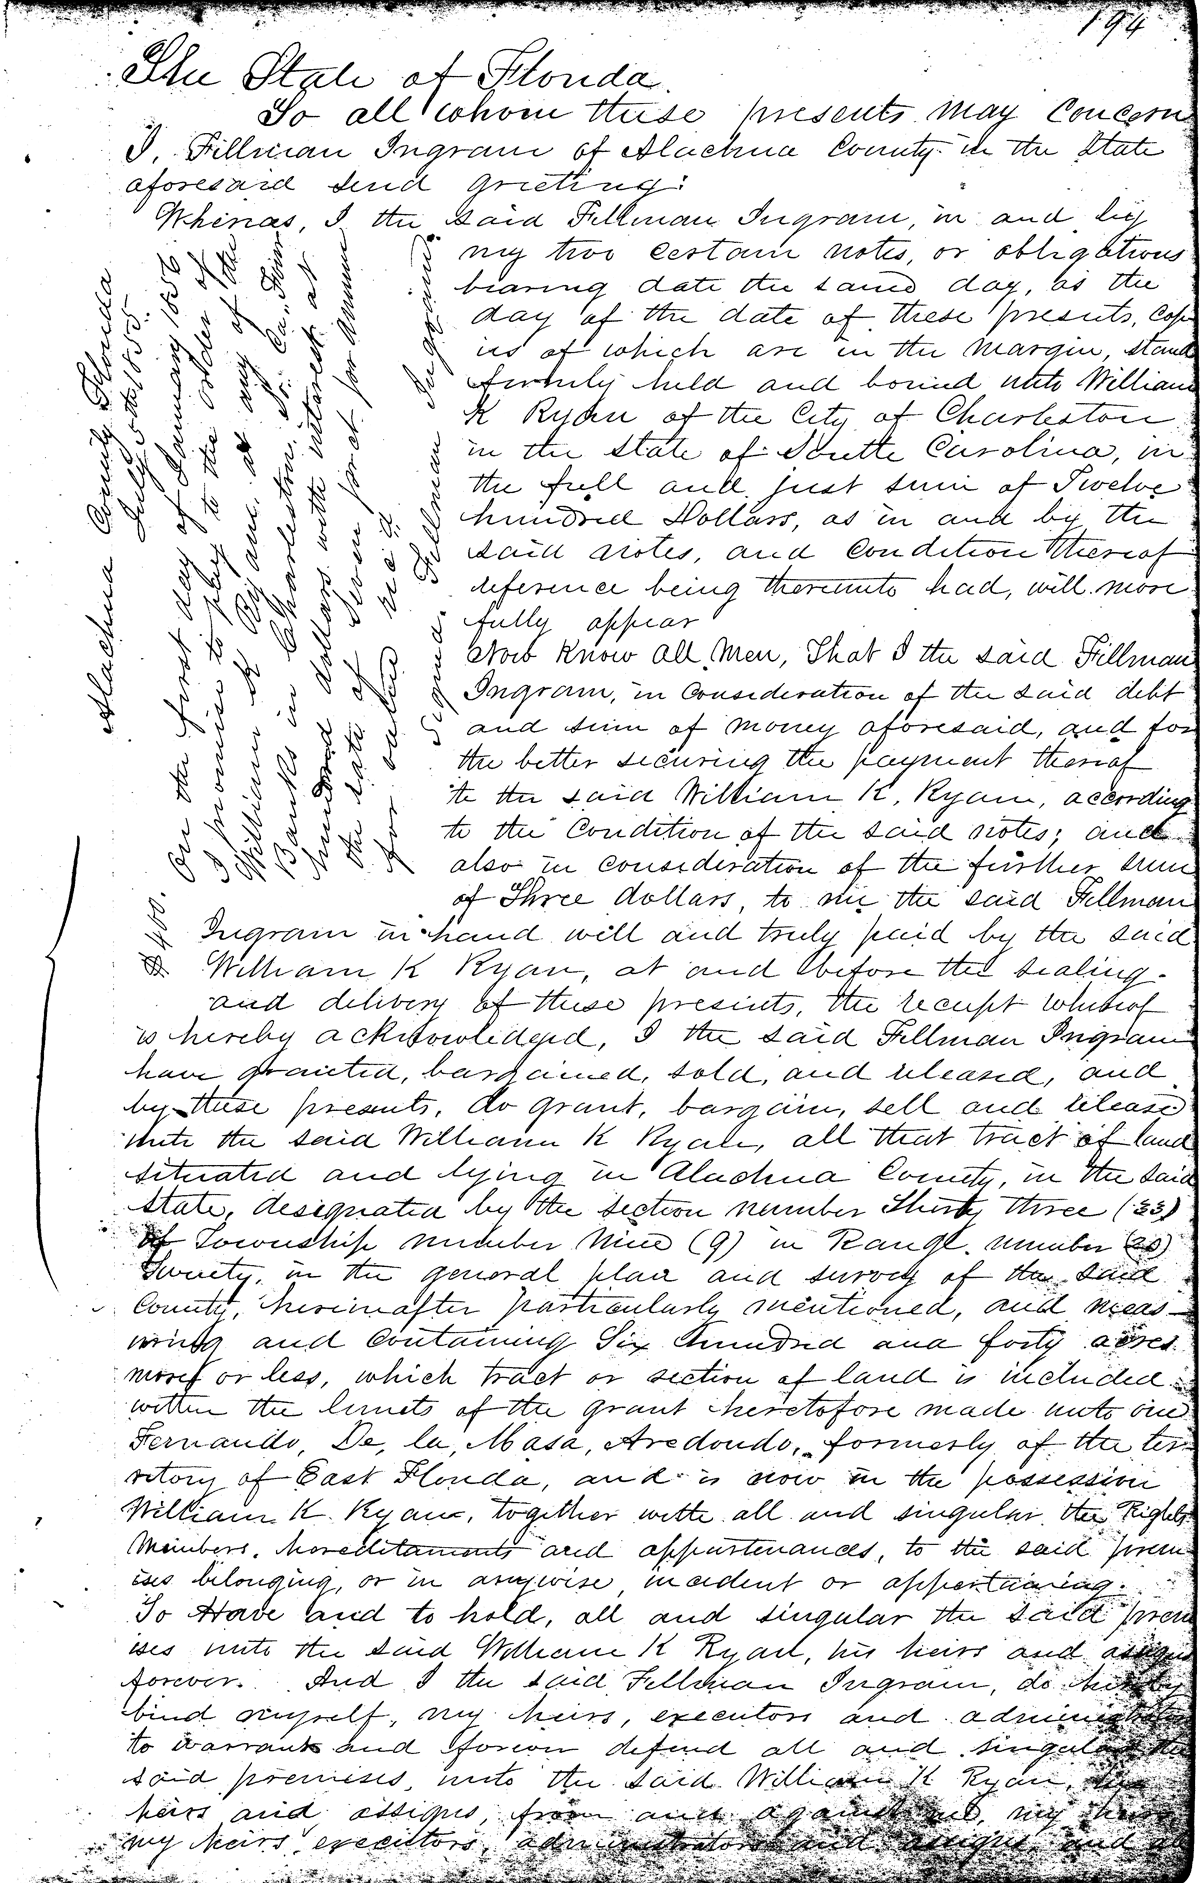 194
The State of Florida.
To all whom these presents may Concern
I, Fillman Ingram of Alachua County in the State
aforesaid send greeting:
Whereas, I the said Fillman Ingram, in and by
my two certain notes, or obligations
bearing date the same day, as the
day of the date of these presents, Cop
ies of which are in the margin, stand
firmly held and bound unto William
K Ryan of the City of Charleston
in the State of South Carolina, in
the full and just sum of Twelve
hundred Dollars, as in and by the
said notes, and Condition thereof
reference being thereunto had, will more
fully appear
Now Know all Men, That I the said Fillman
Ingram, in Consideration of the said debt
and sum of money aforesaid, and for
the better securing the payment thereof
to the said William K. Ryan, according
to the Condition of the said notes; and
also in consideration of the further sum
of Three dollars, to me the said Fillman
Ingram in hand well and truly paid by the said
William K Ryan, at and before the sealing
and delivery of these presents, the receipt whereof
is hereby acknowledged, I the said Fillman Ingram
have granted, bargained, sold, and released, and
by these presents, do grant, bargain, sell and release
unto the said William K Ryan, all that tract of land
situated and lying in Alachua County, in the said
State, designated by the section number Thirty three (33)
of Township number Nine (9) in Range number (20)
Twenty, in the general plan and survey of the said
County, hereinafter particularly mentioned, and meas
uring and Containing Six hundred and forty acres
more or less, which tract or section of land is included
within the limits of the grant heretofore made unto one
Fernando, De, la, Masa, Aredondo, formerly of the ter
ritory of East Florida, and is now in the possession
William K. Ryan, together with all and singular the Rights
Members, hereditaments and appurtenances, to the said prem
ises belonging, or in anywise incident or appertaining.
To Have and to hold, all and singular the said prem
ises unto the said William K Ryan, his heirs and assigns
forever. And I the said Fillman Ingram, do hereby
bind myself, my heirs, executors and administrators
to warrant and forever defend all and singular the
said premises, unto the said William K Ryan, his
heirs and assigns, from and against me, my heirs
my heirs, executors, administrators and assigns and all
Alachua County Florida
July 5th 1855.
$400. On the first day of January 1856
I promise to pay to the order of
William K Ryan at any of the
Banks in Charleston, So. Ca., Four
hundred dollars with interest at
the rate of Seven pr ct per annum
for value rec'd
Signed. Fillman Ingram